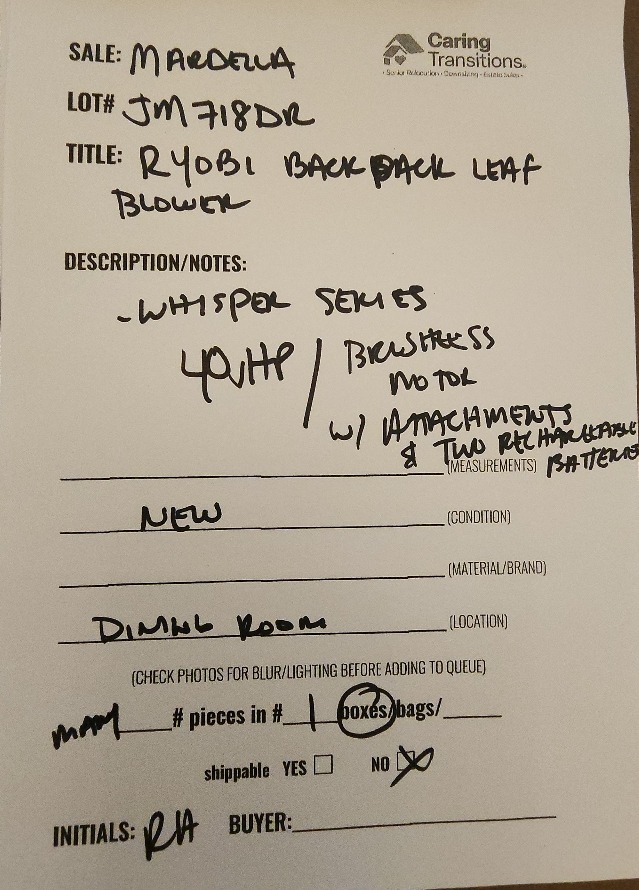 SALE: MARDELLA
Caring
Transitions.
• Senior Relocation • Downsizing • Estate Sales •
LOT# JM718DR
TITLE: RYOBI BACKPACK LEAF
BLOWER
DESCRIPTION/NOTES:
- WHISPER SERIES
40VHP / BRUSHLESS
MOTOR
W/ ATTACHMENTS
& TWO RECHARGEABLE
(MEASUREMENTS) BATTERIES
NEW (CONDITION)
(MATERIAL/BRAND)
DINING ROOM (LOCATION)
(CHECK PHOTOS FOR BLUR/LIGHTING BEFORE ADDING TO QUEUE)
MANY # pieces in # 1 boxes/bags/
shippable YES ☐ NO ☒
INITIALS: RH BUYER: